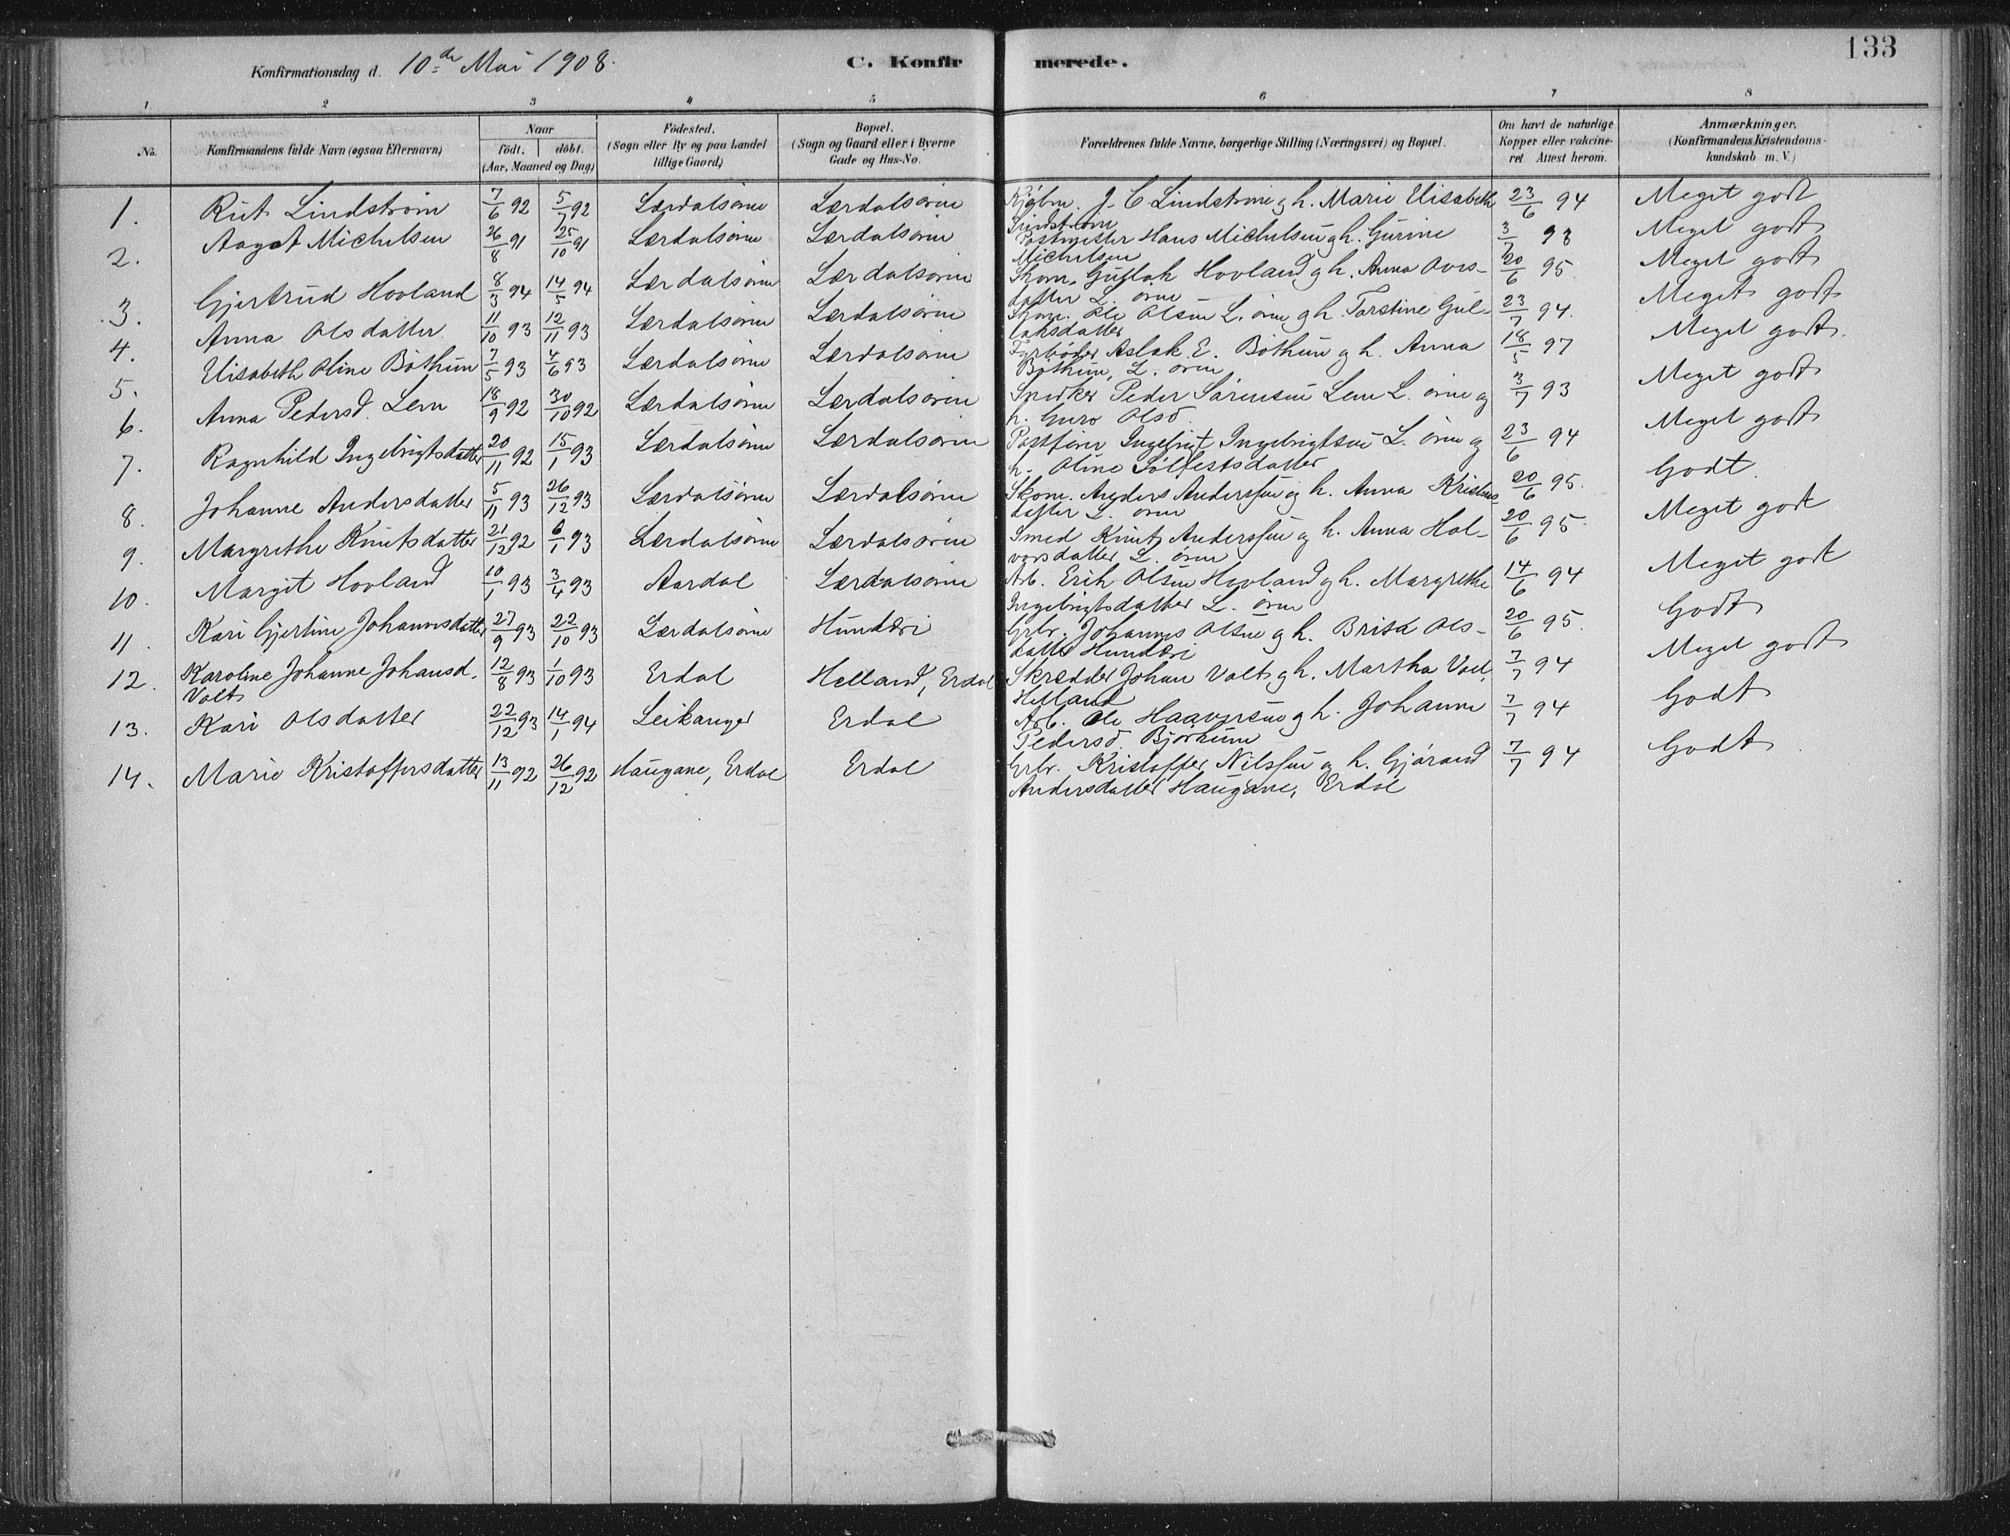 Konfirmationsdag d. 10de Mai 1908.
C. Konfirmerede.
133
1 2 3 4 5 6 7 8
No.
Konfirmandens fulde Navn (ogsaa Efternavn)
Naar födt. döbt. (Aar, Maaned og Dag)
Födested. (Sogn eller By og paa Landet tillige Gaard)
Bopæl. (Sogn og Gaard eller i Byerne Gade og Hus-No.
Forældrenes fulde Navne, borgerlige Stilling (Næringsvei) og Bopæl.
Om havt de naturlige Kopper eller vakcineret Attest herom.
Anmærkninger. (Konfirmandens Kristendomskundskab m. V.)
1. Rut Lindström 7/6 92 5/7 92 Lærdalsören Lærdalsören Kjöbm. J. C. Lindström og h. Marie Elisabeth 23/6 94 Meget godt
Lindström
2. Aagot Michelsen 26/8 91 25/10 91 Lærdalsören Lærdalsören Postmester Hans Michelsen og h. Gurine 3/7 93 Meget godt
Michelsen
3. Gjertrud Hovland 8/3 94 14/5 94 Lærdalsören Lærdalsören Skom. Gutlak Hovland og h. Anna 20/6 95. Meget godt
datter L. ören
4. Anna Olsdatter 11/10 93 12/11 93 Lærdalsören Lærdalsören Skom. Ole Olsen L. ören og h. Torstine Gul- 23/7 94. Meget godt
laksdatter
5. Elisabeth Oline Böthun 7/5 93 4/6 93 Lærdalsören Lærdalsören Fyrböder Aslak E. Böthun og h. Anna 18/5 97 Meget godt.
Böthun, L. ören
6. Anna Pedersd. Lem 18/9 92 30/10 92 Lærdalsören Lærdalsören Snedker Peder Sörensen Lem L. ören og 3/7 93 Meget godt
h. Guro Olsd.
7. Ragnhild Ingebrigtsdatter 20/11 92 15/1 93 Lærdalsören Lærdalsören Postförer Ingebrigt Ingebrigtsen L. ören og 23/6 94 Meget godt
h. Oline Sölfestsdatter
8. Johanne Andersdatter 5/11 93 26/12 93 Lærdalsören Lærdalsören Skom. Anders Anderssen og h. Anna Kristens 20/6 95. Godt.
datter L. ören
9. Margrethe Knutsdatter 21/12 92 6/1 93 Lærdalsören Lærdalsören Smed Knut Anderssen og h. Anna Hal- 20/6 95. Meget godt
vorsdatter L. ören
10. Margit Hovland 10/1 93 3/4 93 Aardal Lærdalsören Arb. Erik Olsen Hovland og h. Margrethe 14/6 94 Meget godt
Ingebrigtsdatter L. ören
11. Kari Gjertine Johannesdatter 27/9 93 22/10 93 Lærdalsören Hunderi Grbr. Johannes Olsen og h. Brita Ols- 20/6 95. Godt
datter Hunderi
12. Karoline Johanne Johansd. 12/8 93 1/10 93 Erdal Helland, Erdal Skredder Johan Volt og h. Martha Volt, 7/7 94 Meget godt
Volt Helland
13. Kari Olsdatter 22/12 93 14/1 94 Leikanger Erdal Arb. Ole Haaversen og h. Johanne 7/7 94 Godt
Pedersd. Björkum
14. Marie Kristoffersdatter 13/11 92 26/12 92 Haugane, Erdal Erdal Grbr. Kristoffer Nilssen og h. Gjörand 7/7 94 Godt.
Andersdatter Haugane, Erdal